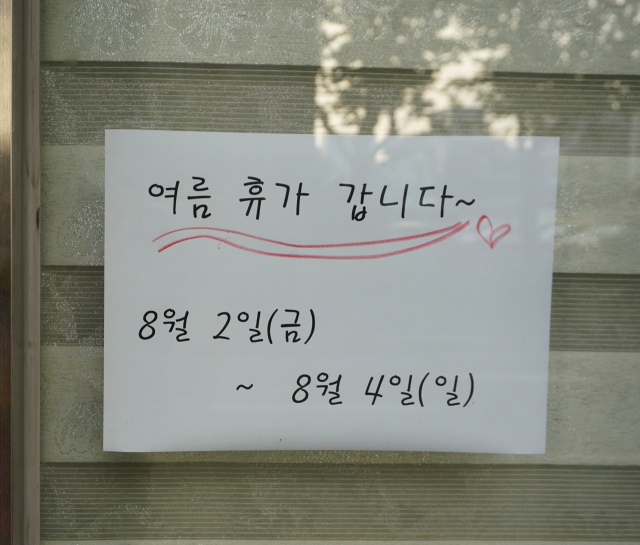 여름 휴가 갑니다~
8월 2일(금)
~ 8월 4일(일)